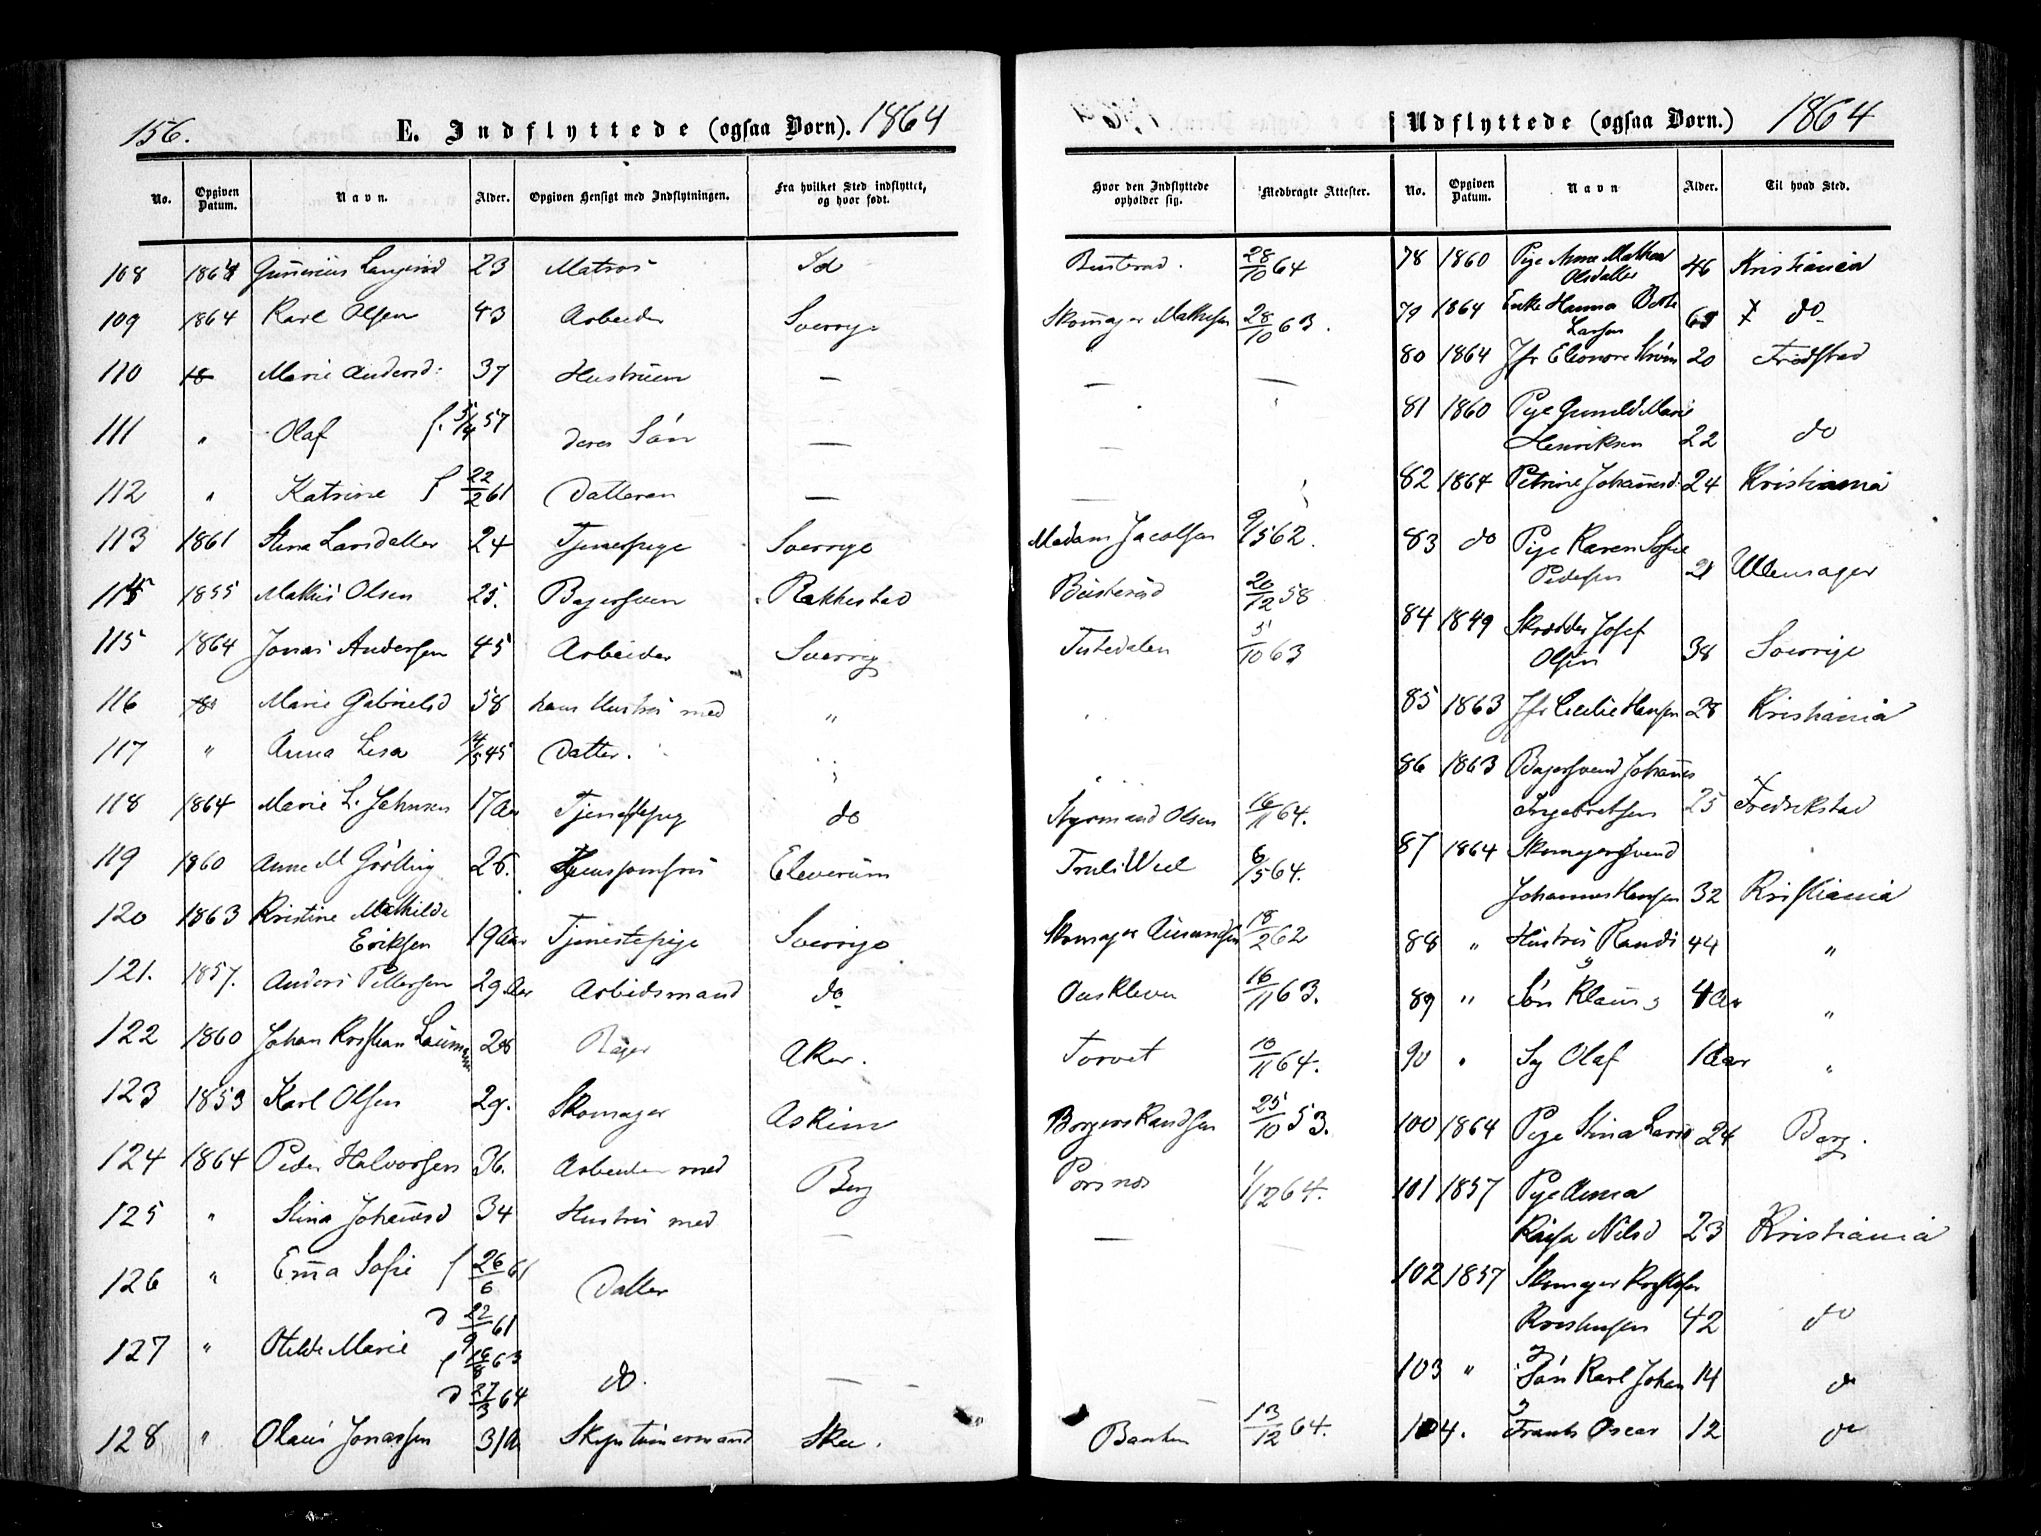 156.
E. Indflyttede (ogsaa Børn). 1864
No. Opgiven Datum. Navn. Alder. Opgiven Hensigt med Indflytningen. Fra hvilket Sted indflyttet, og hvor født. Hvor den Indflyttede opholder sig. Medbragte Attester.
108 1864 Gunerius 23 Matros Id 28/10 64
109 1864 Karl Olsen 43 Arbeider Sverrige Skomager Mathisen 28/10 63.
110 18 Marie Andersd: 37 Hustruen — — —
111 " Olaf f. 5/4 57 deres Søn — —
112 " Katrine f 22/2 61 Datteren — —
113 1861 Stina Larsdatter 24 Tjenestpige Sverrige Madam Jacobsen 9/5 62.
115 1855 Mathis Olsen 25. Bagersven Rakkestad Busterud 20/12 58
115 1864 Jonas Andersen 45 Arbeider Sverrig Tistedalen 5/10 63
116 18 Marie Gabrielsd 58 hans Hustru med "
117 " Anna Lisa 14/5 45 Datter. "
118 1864 Marie L. Johnsen 17 Aar Tjenestepig do Styrmand Olsen 16/11 64.
119 1860 Anne M 26. Eleverum 6/5 64.
120 1863 Kristine Mathilde
Eriksen 19 Aar Tjenestepige Sverrige Skomager 18/2 62
121. 1857. Anders Pettersen 29 Aar Arbeidsmand do 16/11 63.
122 1860 Johan Kristian 28 Aker. Torvet 10/11 64.
123 1853 Karl Olsen 29. Skomager Askim 25/10 53.
124 1864 Peder Halvorsen 36. Arbeider med Berg 1/12 64.
125 " Stina Johannesd 34 Hustru med — —
126 " Emma Sofie f 26/6 61 Datter
d 22/9 61
127 " Otilde Marie f 16/8 63
d 27/3 64 do. — —
128 " Olaus Jonassen 31 Aar Skee. Banken 13/12 64.
Udflyttede (ogsaa Børn.) 1864
No. Opgiven Datum. Navn Alder. Til hvad Sted.
78 1860 Pige Anne Mathea
Olsdatter 46 Kristiania
79 1864 Enke Hanna
Larsen 65 do
80 1864 Jfr Eleonore Strøm 20 Fredstad
81 1860 Pige Gunild Marie
Henriksen 22 do
82 1864 Petrine Johannesd: 24 Kristiania
83 do Pige Karen Sofie
Pedersen 21 Ullensager
84 1849 Skrædder Josef
Olsen 38 Sverrige
85 1863 Jfr Cecilie Hansen 28 Kristiania
86 1863 Bagersvend Johannes
Ingebretsen 25 Fredrikstad
87 1864 Skomagersvend
Johannes Hansen 32 Kristiania
88 " Hustru Randi 44 "
89 " Søn Klaus 4 Aar "
90 " Olaf 1 Aar "
100 1864 Pige Stina Larsd 24 Berg.
101 1857 Pige Anna
Kaisa Nilsd 23 Kristiania
102 1857 Skomager Kristofer
Kristensen 42 do
103 " Søn Karl Johan 14 do
104. Frants Oscar 12 do